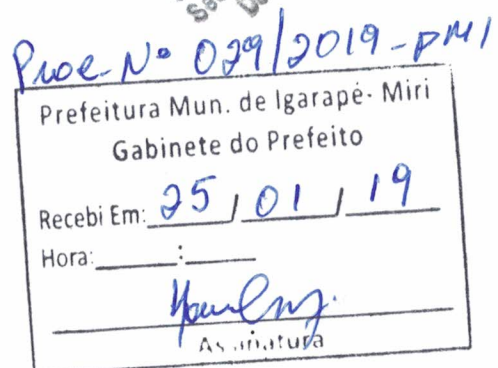 Proc. Nº 029/2019-PMI
Prefeitura Mun. de Igarapé- Miri
Gabinete do Prefeito
Recebi Em: 25 / 01 / 19
Hora: :
Assinatura